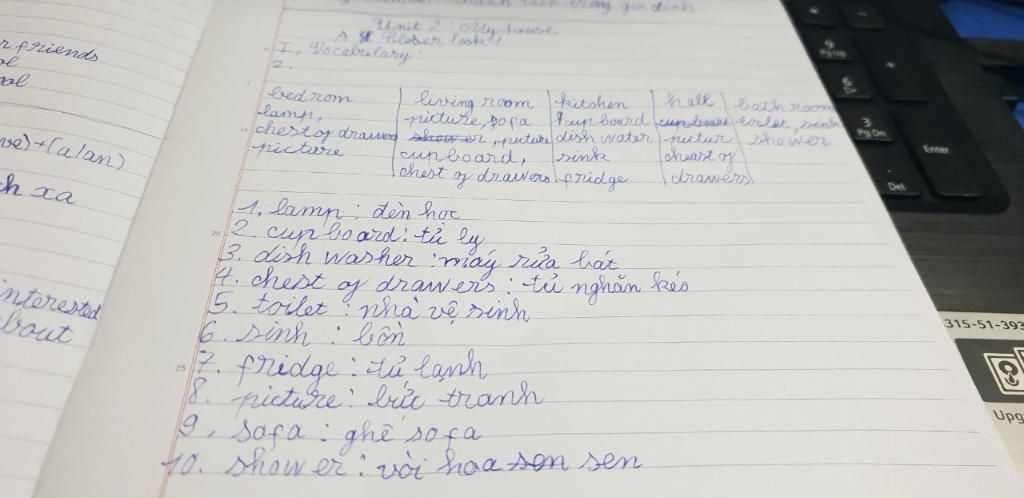 thành viên trong gia đình
Unit 2: My house
A Closer look 1
I, Vocabulary:
2.
bedrom living room kitchen hall bathroom
lamp, picture, sofa cupboard cupboard toilet, sink
chest of drawers shower, picture dish water pictur shower
picture cupboard, sink cheast of
chest of drawers fridge drawers
1, lamp: đèn học
2. cupboard: tủ ly
3. dish washer: máy rửa bát
4. chest of drawers: tủ nghăn kéo
5. toilet: nhà vệ sinh
6. sinh: bồn
7. fridge: tủ lạnh
8. picture: bức tranh
9. sofa: ghế sofa
10. shower: vòi hoa sen sen
r friends
ol
ool
+(a/an)
ch xa
interested
bout
9
Pg Up
6
3
Pg Dn
Enter
Del
+
315-51-393
Upg